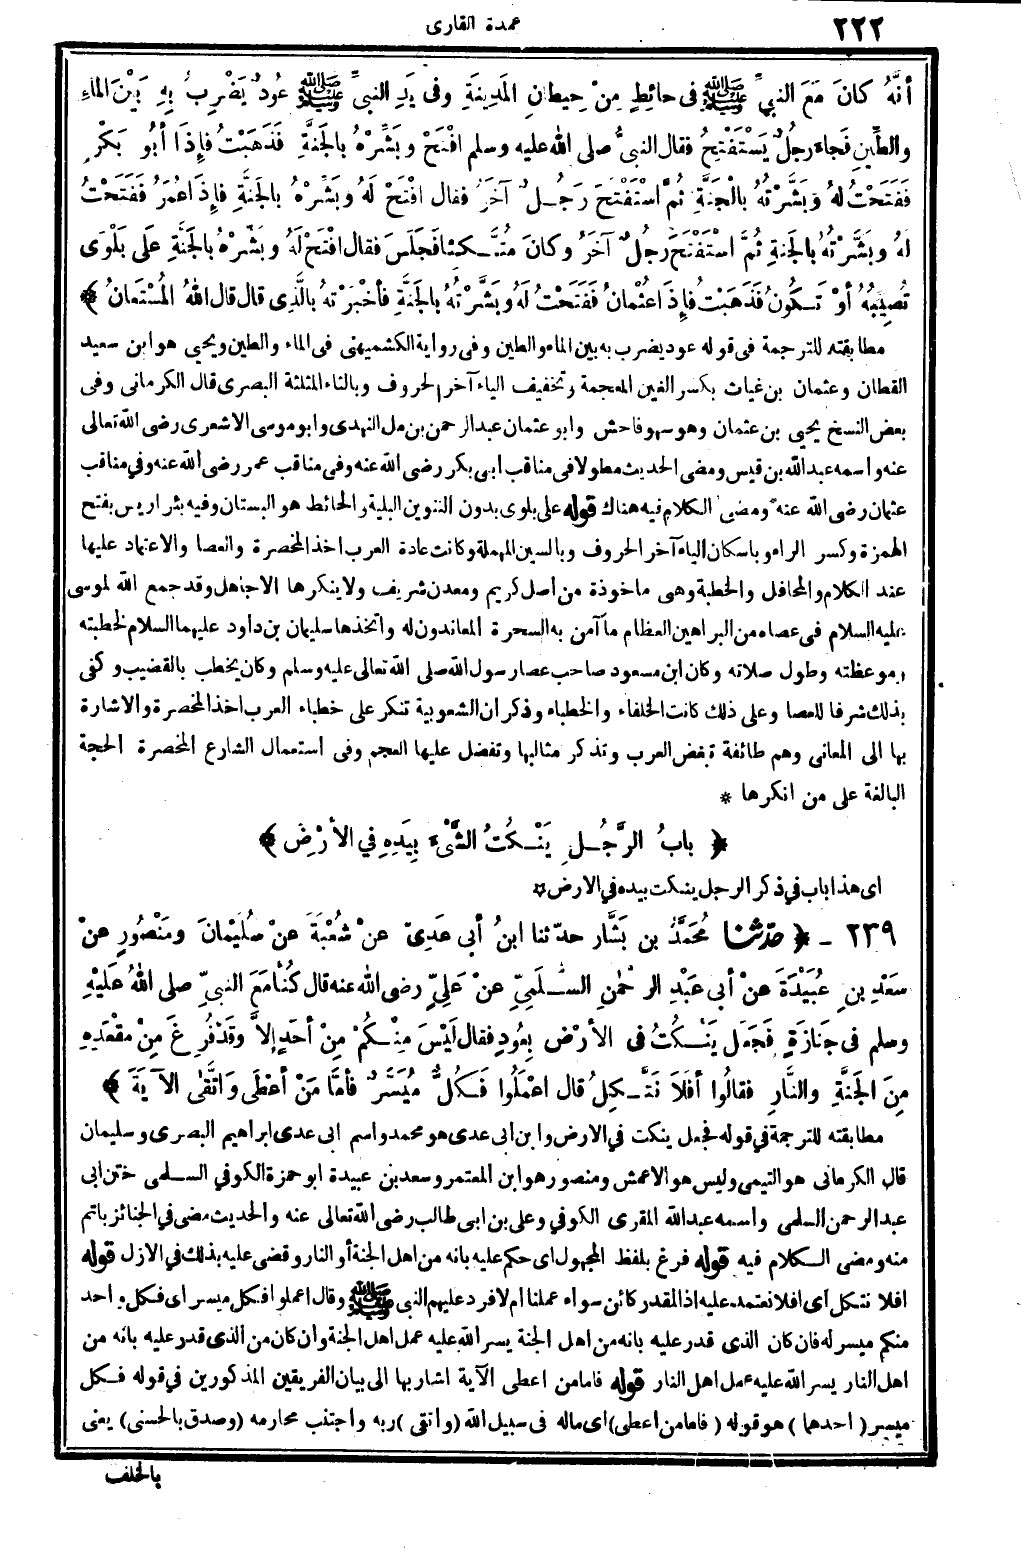 ٢٢٢
عمدة القارى
أنَّهُ كانَ مَعَ النبيِّ ﷺ فى حائِطٍ مِنْ حِيطانِ المَدِينَةِ وفى يَدِ النبيِّ ﷺ عُودٌ يَضْرِبُ بِهِ بَيْنَ الماءِ
والطِّينِ فَجاءَ رجُلٌ يَسْتَفْتِحُ فقال النبيُّ صلى الله عليه وسلم افْتَحْ وبَشِّرْهُ بالجَنَّةِ فَذَهَبْتُ فإِذَا أبُو بَكْرٍ
فَفَتَحْتُ لهُ وبَشَّرْتُهُ بالْجَنَّةِ ثُمَّ اسْتَفْتَحَ رَجُـلٌ آخَرُ فقال افْتَحْ لَهُ وبَشِّرْهُ بالجَنةِ فإِذَا عُمَرُ فَفَتَحْتُ
لَهُ وبَشَّرْتُهُ بالجَنةِ ثُمَّ اسْتَفْتَحَ رجُلٌ آخَرُ وكانَ مُتَّـكئا فَجلَسَ فقال افْتَحْ لَهُ وبَشِّرْهُ بالجَنَّةِ عَلَى بَلْوَى
تُصِيبُهُ أوْ تَـكُونُ فَذَهَبْتُ فإِذَا عُثْمانُ فَفَتَحْتُ لَهُ وبَشَّرْتُهُ بالجَنَّةِ فأخْبَرْتهُ بالَّذِى قال قال اللهُ المُسْتَعانُ ﴾
مطابقته للترجمة فى قوله عود يضرب به بين الماء والطين وفى رواية الكشميهنى فى الماء والطين ويحيى هو ابن سعيد
القطان وعثمان بن غياث بكسر الغين المعجمة وتخفيف الياء آخر الحروف وبالثاء المثلثة البصرى قال الكرمانى وفى
بعض النسخ يحيى بن عثمان وهو سهو فاحش وابو عثمان عبد الرحمن بن مل النهدى وابو موسى الاشعرى رضى الله تعالى
عنه واسمه عبد الله بن قيس ومضى الحديث مطولا فى مناقب ابى بكر رضى الله عنه وفى مناقب عمر رضى الله عنه وفى مناقب
عثمان رضى الله عنه ومضى الكلام فيه هناك قوله على بلوى بدون التنوين البلية والحائط هو البستان وفيه بئر اريس بفتح
الهمزة وكسر الراء وباسكان الياء آخر الحروف وبالسين المهملة وكانت عادة العرب اخذ المخصرة والعصا والاعتماد عليها
عند الكلام والمحافل والخطبة وهى ماخوذة من اصل كريم ومعدن شريف ولا ينكرها الا جاهل وقد جمع الله لموسى
عليه السلام فى عصاه من البراهين العظام ما آمن به السحرة المعاندون له واتخذها سليمان بن داود عليهما السلام لخطبته
وموعظته وطول صلاته وكان ابن مسعود صاحب عصا رسول الله صلى الله تعالى عليه وسلم وكان يخطب بالقضيب وكفى
بذلك شرفا للعصا وعلى ذلك كانت الخلفاء والخطباء وذكر ان الشعوبية تنكر على خطباء العرب اخذ المخصرة والاشارة
بها الى المعانى وهم طائفة تبغض العرب وتذكر مثالبها وتفضل عليها العجم وفى استعمال الشارع المخصرة الحجة
البالغة على من انكرها *
﴿ بابُ الرَّجُـلِ يَنْـكُتُ الشَّىْءَ بِيَدِهِ فِي الأرْضِ ﴾
اى هذا باب في ذكر الرجل ينكت بيده في الارض *
٢٣٩ - ﴿ حدّثنا مُحَمَّدُ بن بَشَّار حدّثنا ابنُ أبى عَدِىّ عنْ شُعْبَةَ عنْ سُلَيْمانَ ومَنْصُورٍ عنْ
سعَدِ بنِ عُبَيْدَةَ عنْ أبى عَبْدِ الرَّحْمٰنِ السُّـلَمِيِّ عنْ عَلِيّ رضى الله عنه قال كُنَّا مَعَ النبيِّ صلى اللهُ عَلَيْهِ
وسلم فى جَنازَةٍ فَجَعَلَ يَنْـكُتُ فى الأرْضِ بِعُودٍ فقال لَيْسَ مِنْـكُمْ مِنْ أحَدٍ إلاَّ وقَدْ فُرِغَ مِنْ مَقْعَدِهِ
مِنَ الجَنَّةِ والنَّارِ فقالُوا أفَلاَ نَتَّـكِلُ قال اعْمَلُوا فَـكُلٌّ مُيَسَّرٌ فأمَّا مَنْ أعْطَى واتَّقَى الآيَةَ ﴾
مطابقته للترجمة في قوله فجعل ينكت في الارض وابن ابى عدى هو محمد واسم ابى عدى ابراهيم البصرى وسليمان
قال الكرمانى هو التيمى وليس هو الاعمش ومنصور هو ابن المعتمر وسعد بن عبيدة ابو حمزة الكوفي السـلمى ختن ابى
عبد الرحمن السلمى واسمه عبد الله المقرى الكوفي وعلى بن ابى طالب رضى الله تعالى عنه والحديث مضى في الجنائز باتم
منه ومضى الـكلام فيه قوله فرغ بلفظ المجهول اى حكم عليه بانه من اهل الجنة أو النار وقضى عليه بذلك في الازل قوله
افلا نتكل اى افلا نعتمد عليه اذ المقدر كائن سواء عملنا ام لا فرد عليهم النبي ﷺ وقال اعملوا فكل ميسر اى فكل واحد
منكم ميسر له فان كان الذى قدر عليه بانه من اهل الجنة يسر الله عليه عمل اهل الجنة وان كان من الذى قدر عليه بانه من
اهل النار يسر الله عليه عمل اهل النار قوله فامامن اعطى الآية اشار بها الى بيان الفريقين المذكورين في قوله فـكل
ميسر (احدهما) هو قوله (فامامن اعطى) اى ماله فى سبيل الله (واتقى) ربه واجتنب محارمه (وصدق بالحسنى) يعنى
بالخلف